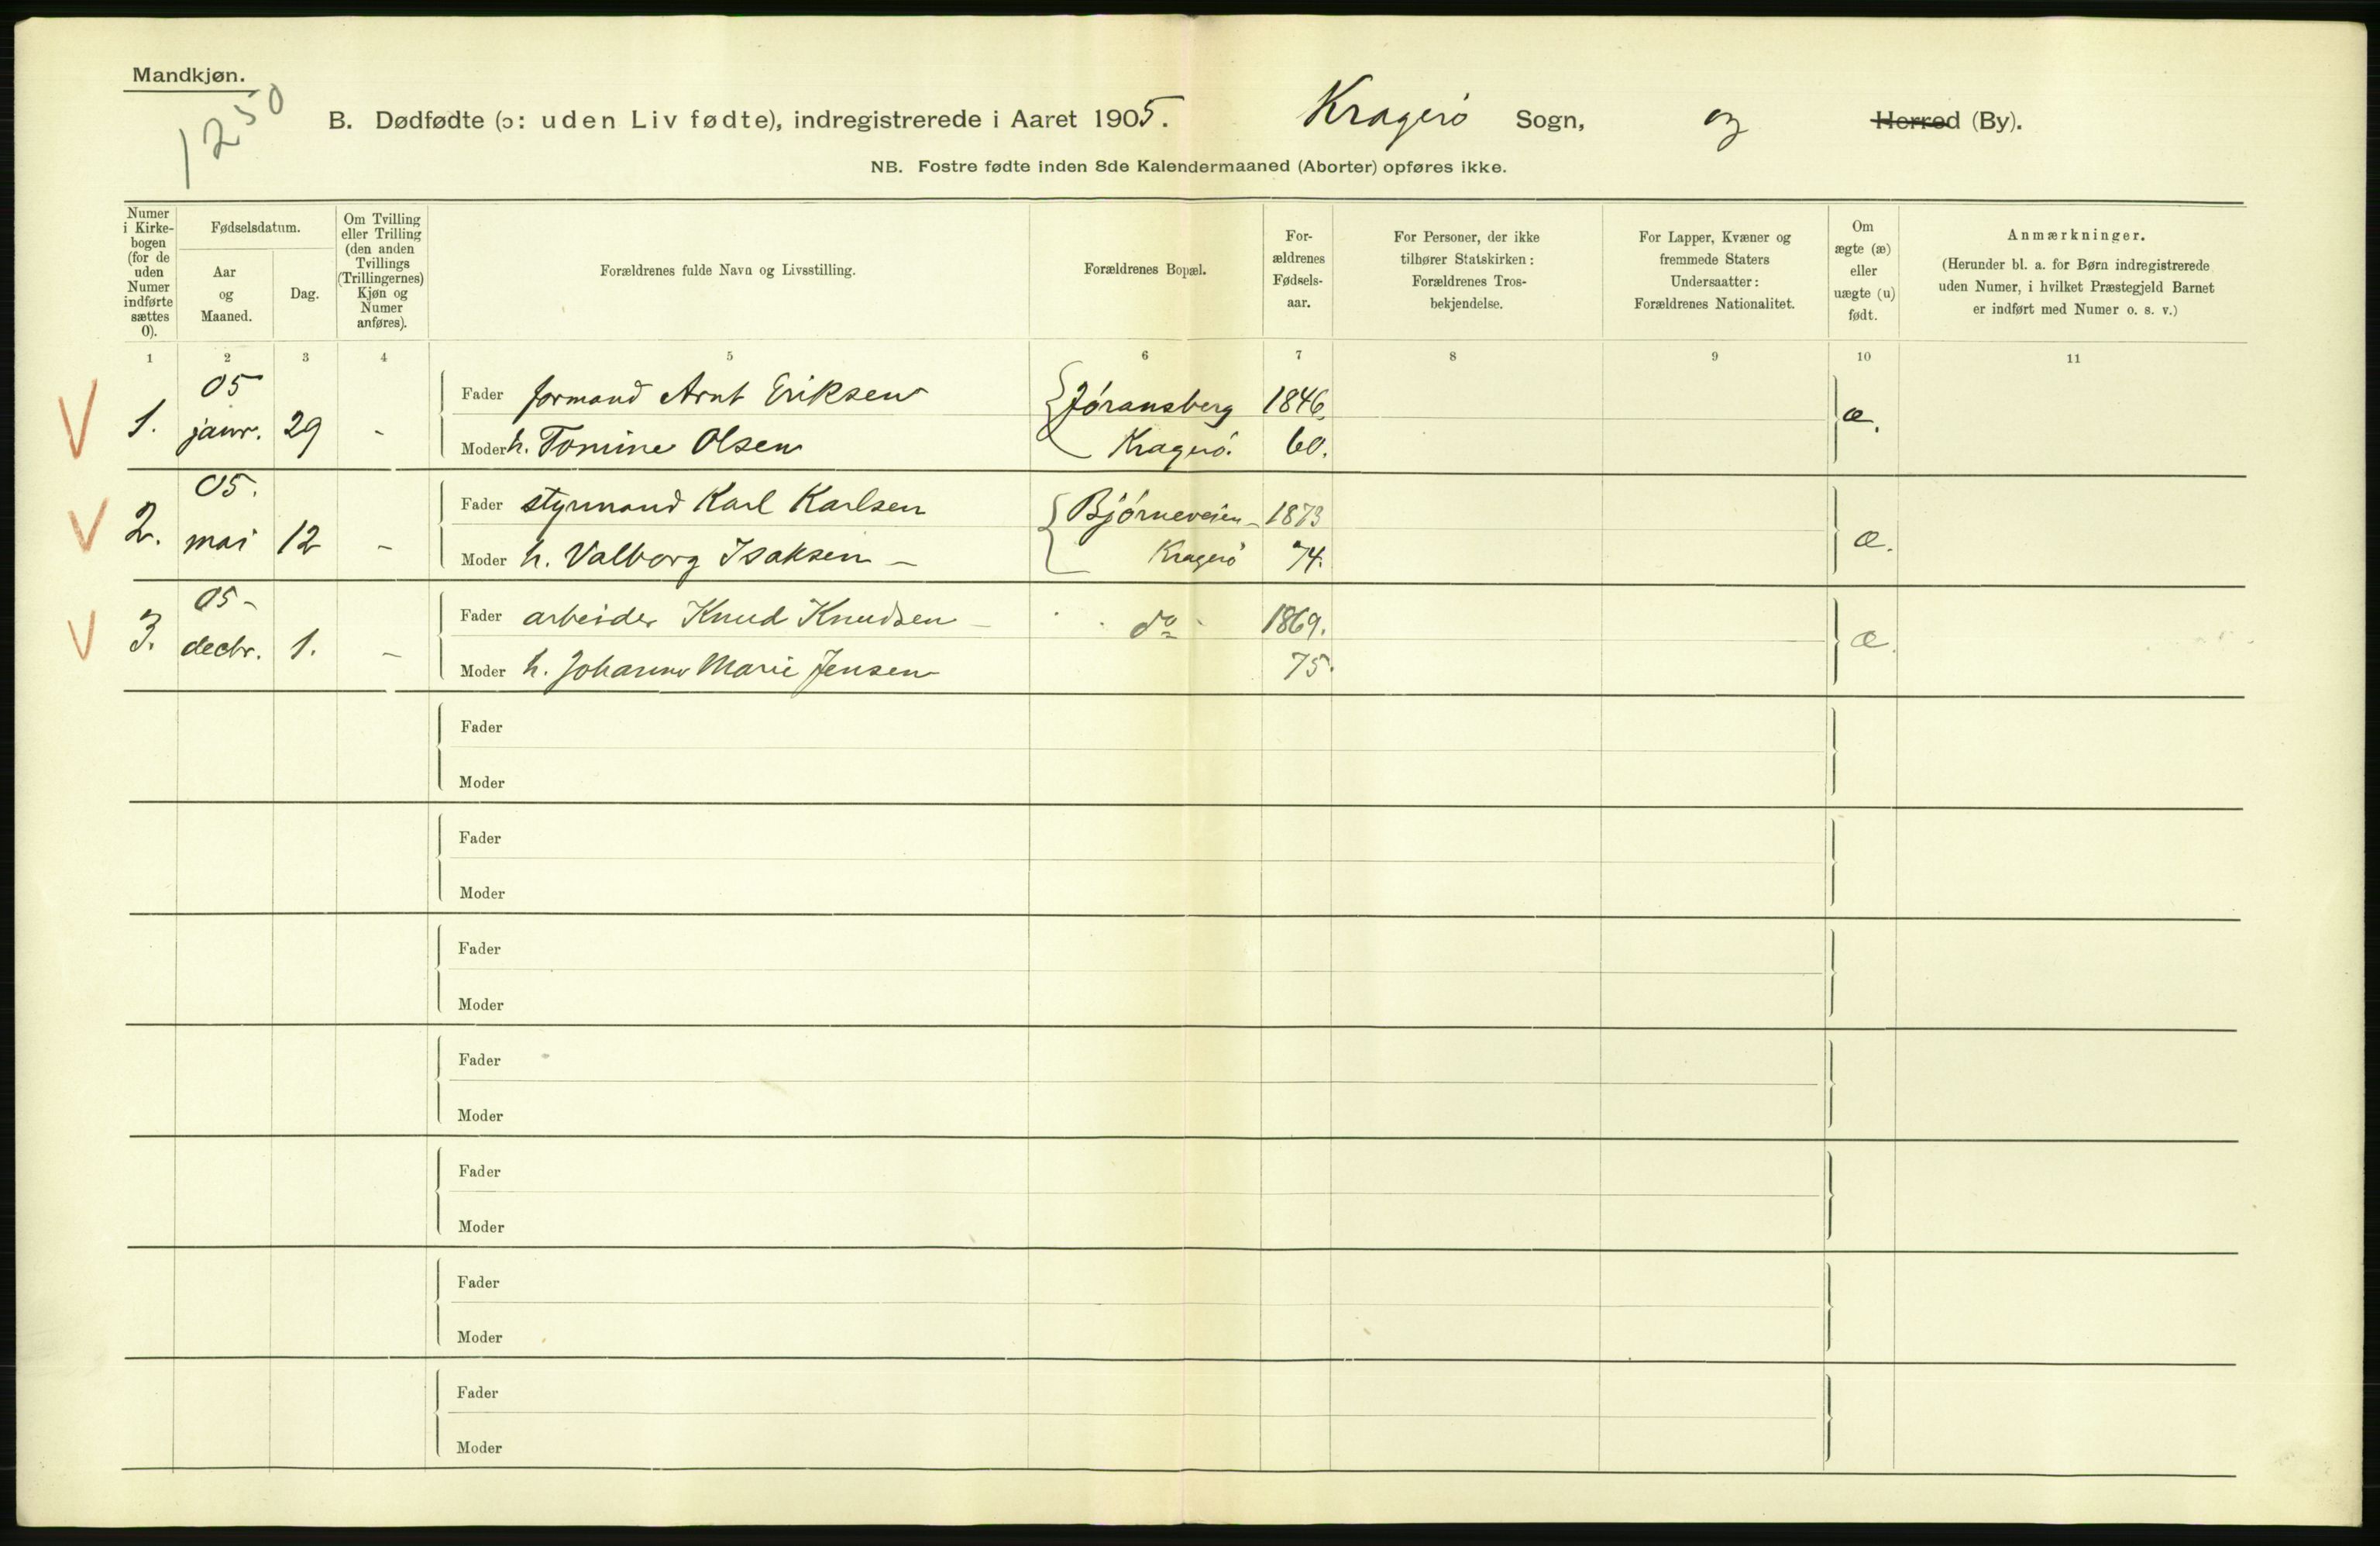 Mandkjøn.
1250
B. Dødfødte (ɔ: uden Liv fødte), indregistrerede i Aaret 1905. Kragerö Sogn, og Herred (By).
NB. Fostre fødte inden 8de Kalendermaaned (Aborter) opføres ikke.
Numer i Kirke-bogen (for de uden Numer indførte sættes 0).
Fødselsdatum.
Aar og Maaned.
Dag.
Om Tvilling eller Trilling (den anden Tvillings (Trillingernes) Kjøn og Numer anføres).
Forældrenes fulde Navn og Livsstilling.
Forældrenes Bopæl.
For-ældrenes Fødsels-aar.
For Personer, der ikke tilhører Statskirken: Forældrenes Tros-bekjendelse.
For Lapper, Kvæner og fremmede Staters Undersaatter: Forældrenes Nationalitet.
Om ægte (æ) eller uægte (u) født.
Anmærkninger.
(Herunder bl. a. for Børn indregistrerede uden Numer, i hvilket Præstegjeld Barnet er indført med Numer o. s. v.)
1 2 3 4 5 6 7 8 9 10 11
05
Fader formand Arnt Eriksen Jöransberg 1846.
1. janr. 29 - Moder h. Tomine Olsen Kragerö. 60. æ.
05.
Fader styrmand Karl Karlsen Björneveien - 1873
2. mai 12 - Moder h. Valborg Isaksen - Kragerö 74. æ.
05 -
Fader arbeider Knud Knudsen - do - 1869.
3. decbr. 1. - Moder h. Johanne Marie Jensen 75. æ.
Fader
Moder
Fader
Moder
Fader
Moder
Fader
Moder
Fader
Moder
Fader
Moder
Fader
Moder